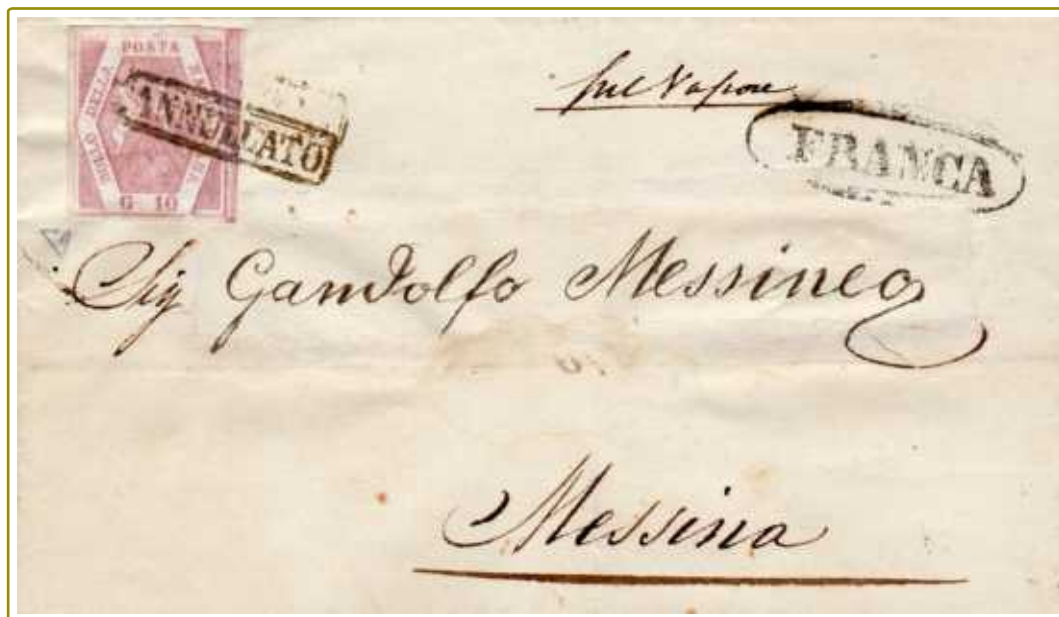 POSTA
BOLLO DELLA
G 10
ANNULLATO
sul Vapore
FRANCA
Sig Gandolfo Messineo
Messina